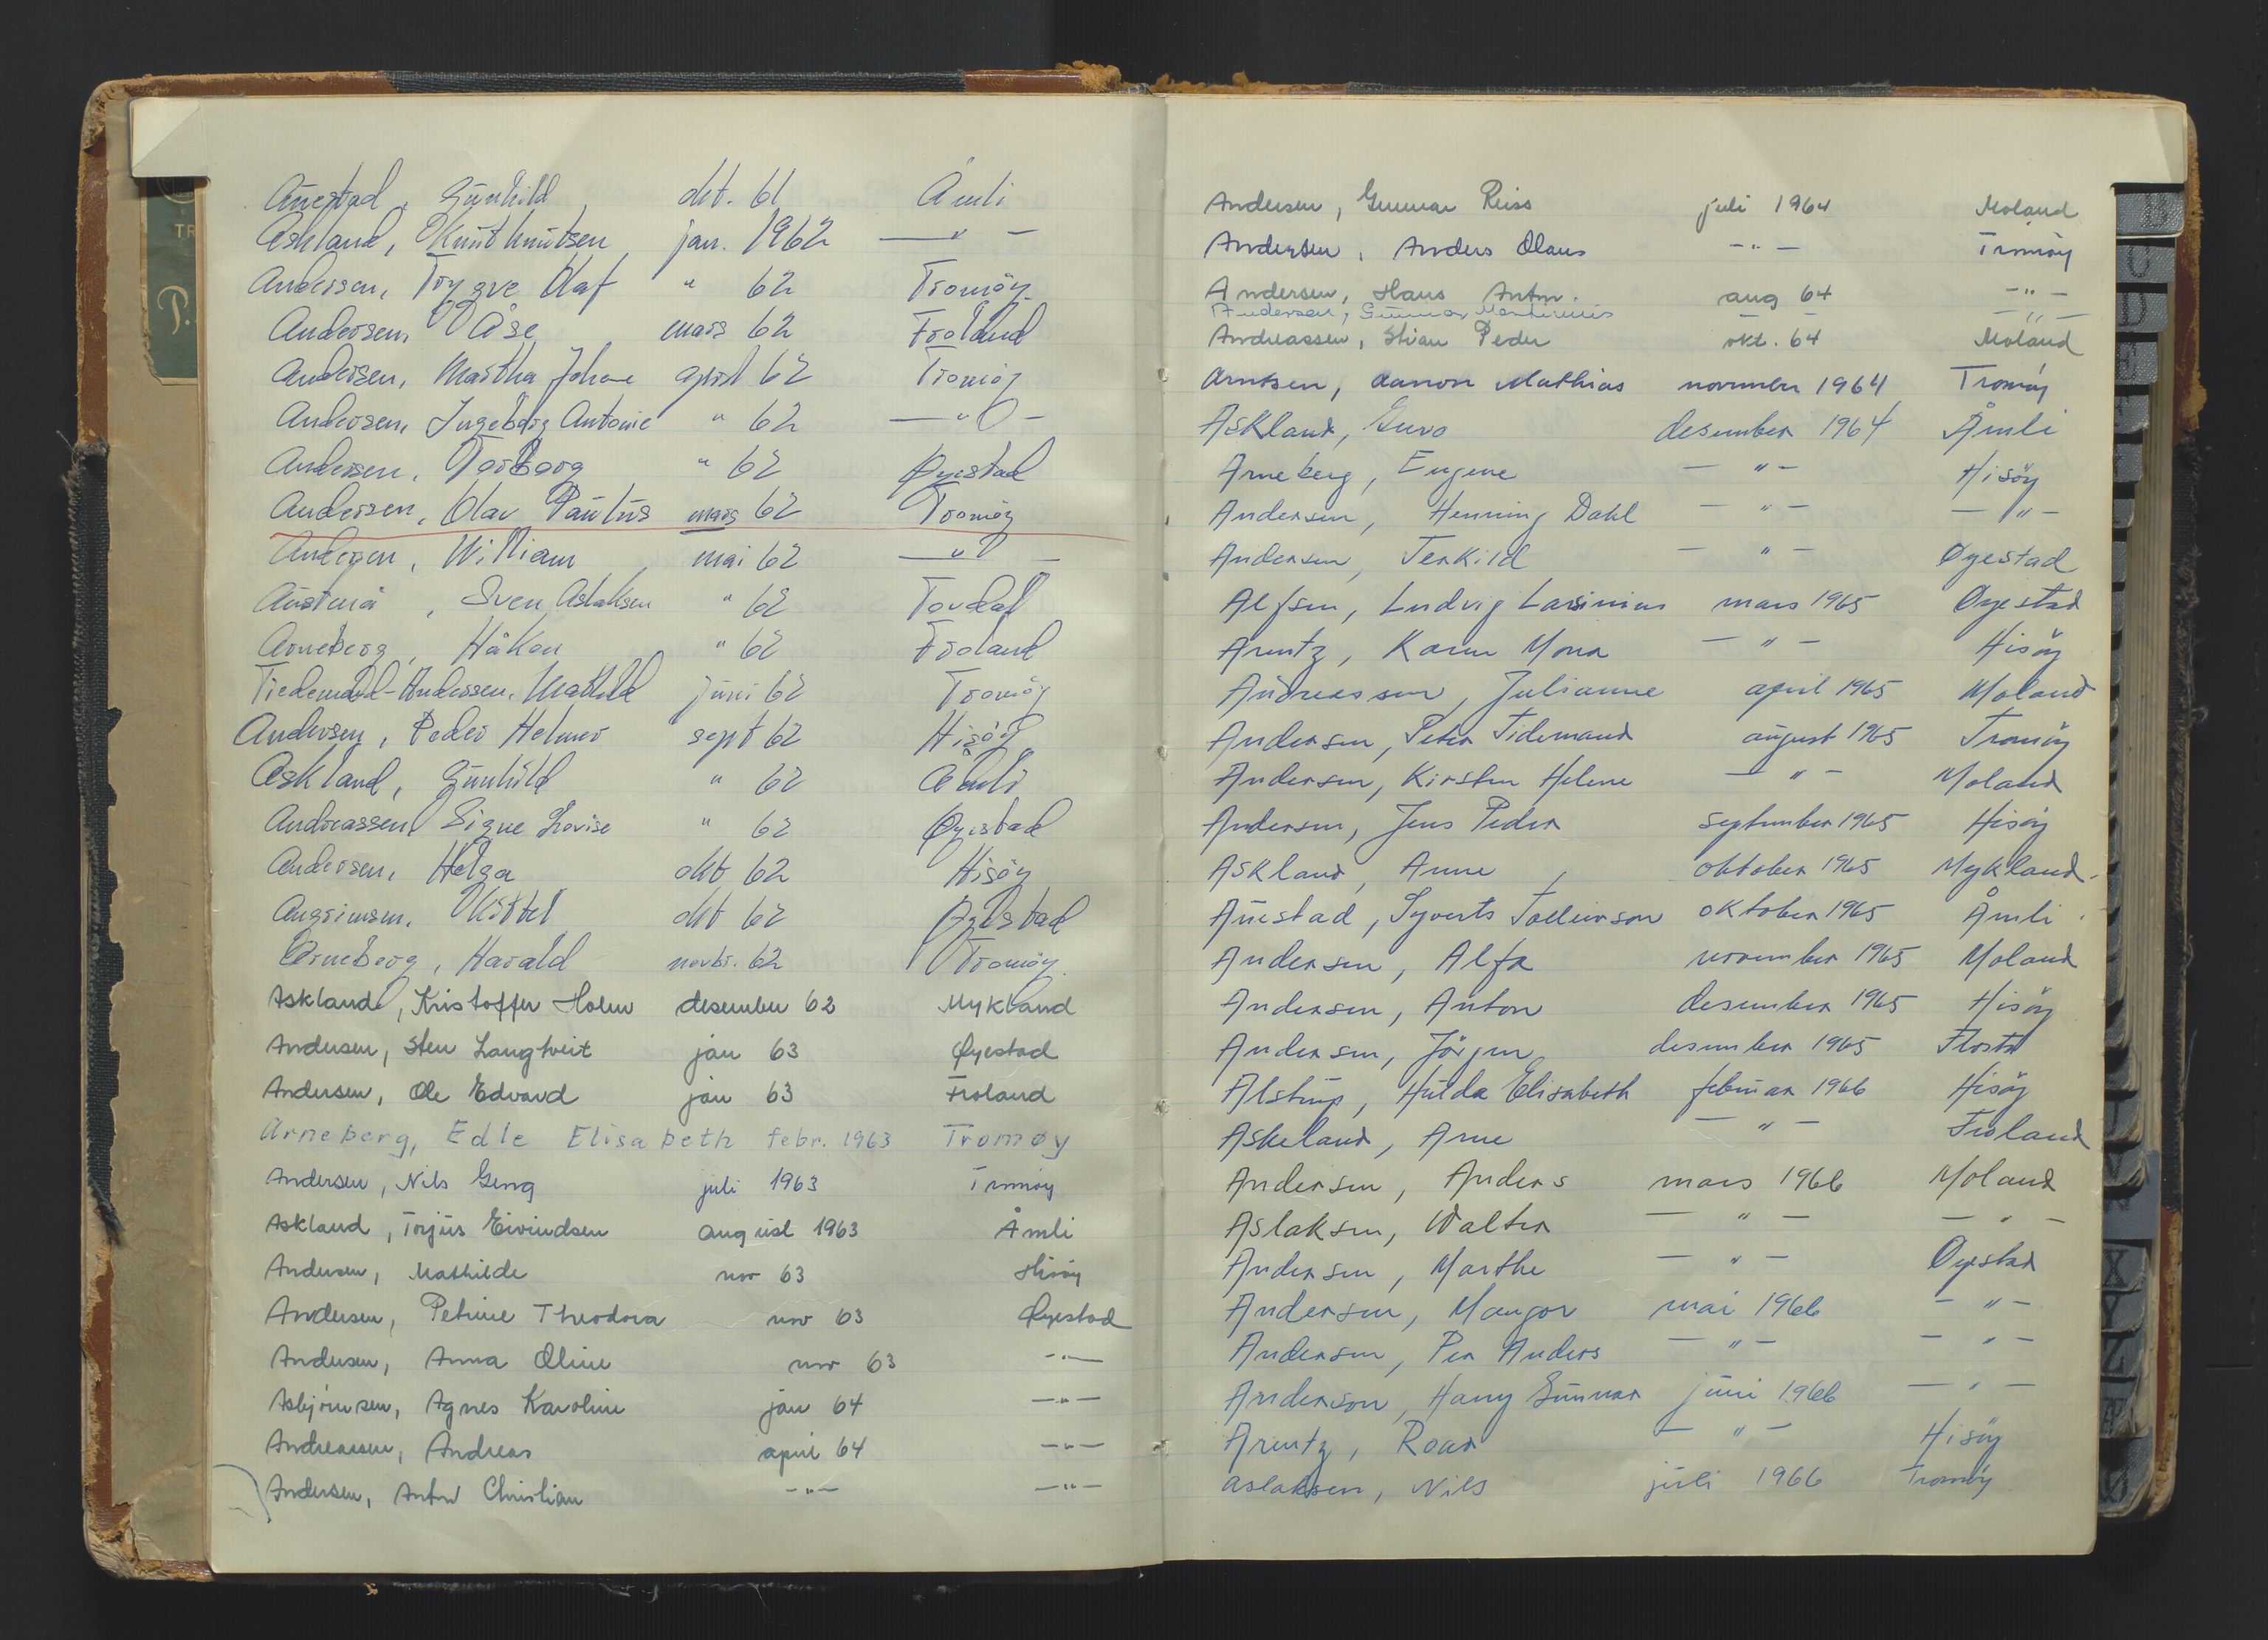 Auestad, Gunhild, okt. 61 Åmli
Askland, Knut Knutsen jan. 1962 — " —
Andersen, Trygve Olaf " 62 Tromøy
Andersen, Åse mars 62 Froland
Andersen, Martha Johane april 62 Tromøy
Andersen, Ingeborg Antonie " 62 — " —
Andersen, Torborg " 62 Øyestad
Andersen, Olav Paulus mars 62 Tromøy
Andersen, William, mai 62 — " —
Austenå, Sven Aslaksen " 62 Tovdal
Arneberg, Håkon " 62 Froland
Tiedemand-Andersen, Mathild juni 62 Tromøy
Andersen, Peder Helmer sept 62 Hisøy
Askland, Gunhild " 62 Åmli
Andreassen, Signe Lovise " 62 Øyestad
Andersen, Helga okt 62 Hisøy
Angrimsen, Kittel okt 62 Øyestad
Arneberg, Harald novbr. 62 Tromøy
Askland, Kristoffer Holm desember 62 Mykland
Andersen, Sten Langtveit jan 63 Øyestad
Andersen, Ole Edvard jan 63 Froland
Arneberg, Edle Elisabeth febr. 1963 Tromøy
Andersen, Nils Georg juli 1963 Tromøy
Askland, Torjus Eivindsen august 1963 Åmli
Andersen, Mathilde nov 63 Hisøy
Andersen, Petrine Theodora nov 63 Øyestad
Andersen, Anna Oline nov 63 — " —
Asbjörnsen, Agnes Karoline jan 64 — " —
Andreassen, Andreas april 64 — " —
Andersen, Anton Christian — " — — " —
Andersen, Gunnar Reiss juli 1964 Moland
Andersen, Anders Olaus — " — Tromøy
Andersen, Hans Anton. aug 64 — " —
Andersen, Gunnar — — — " —
Andreassen, Stian Peder okt. 64 Moland
Arntsen, Aanon Mathias november 1964 Tromøy
Askland, Guro desember 1964 Åmli
Arneberg, Eugene — " — Hisöy
Andersen, Henning Dahl — " — — " —
Andersen, Terkild — " — Øyestad
Alfsen, Ludvig Larsinius mars 1965 Øyestad
Arentz, Karen Mona — " — Hisöy
Andreassen, Julianne april 1965 Moland
Andersen, Peter Tidemand august 1965 Tromöy
Andersen, Kirsten Helene — " — Moland
Andersen, Jens Peder september 1965 Hisöy
Askland, Anne, oktober 1965 Mykland.
Auestad, Syverts Talleivson oktober 1965 Åmli
Andersen, Alfa november 1965 Moland
Andersen, Anton desember 1965 Hisöy
Andersen, Jörgen desember 1965 Flosta
Alstrup, Hulda Elisabeth februar 1966 Hisöy
Askeland, Arne — " — Froland
Andersen, Anders mars 1966 Moland
Aslaksen, Walter — " — — " —
Andersen, Marthe — " — Øyestad
Andersen, Mangor mai 1966 — " —
Andersen, Per Anders — " — — " —
Anderson, Harry Gunnar juni 1966 — " —
Arentz, Roar — " — Hisöy
Aslaksen, Nils juli 1966 Tromöy
B
C
D
E
X
Y
Z
Æ
Ø
TR
P.